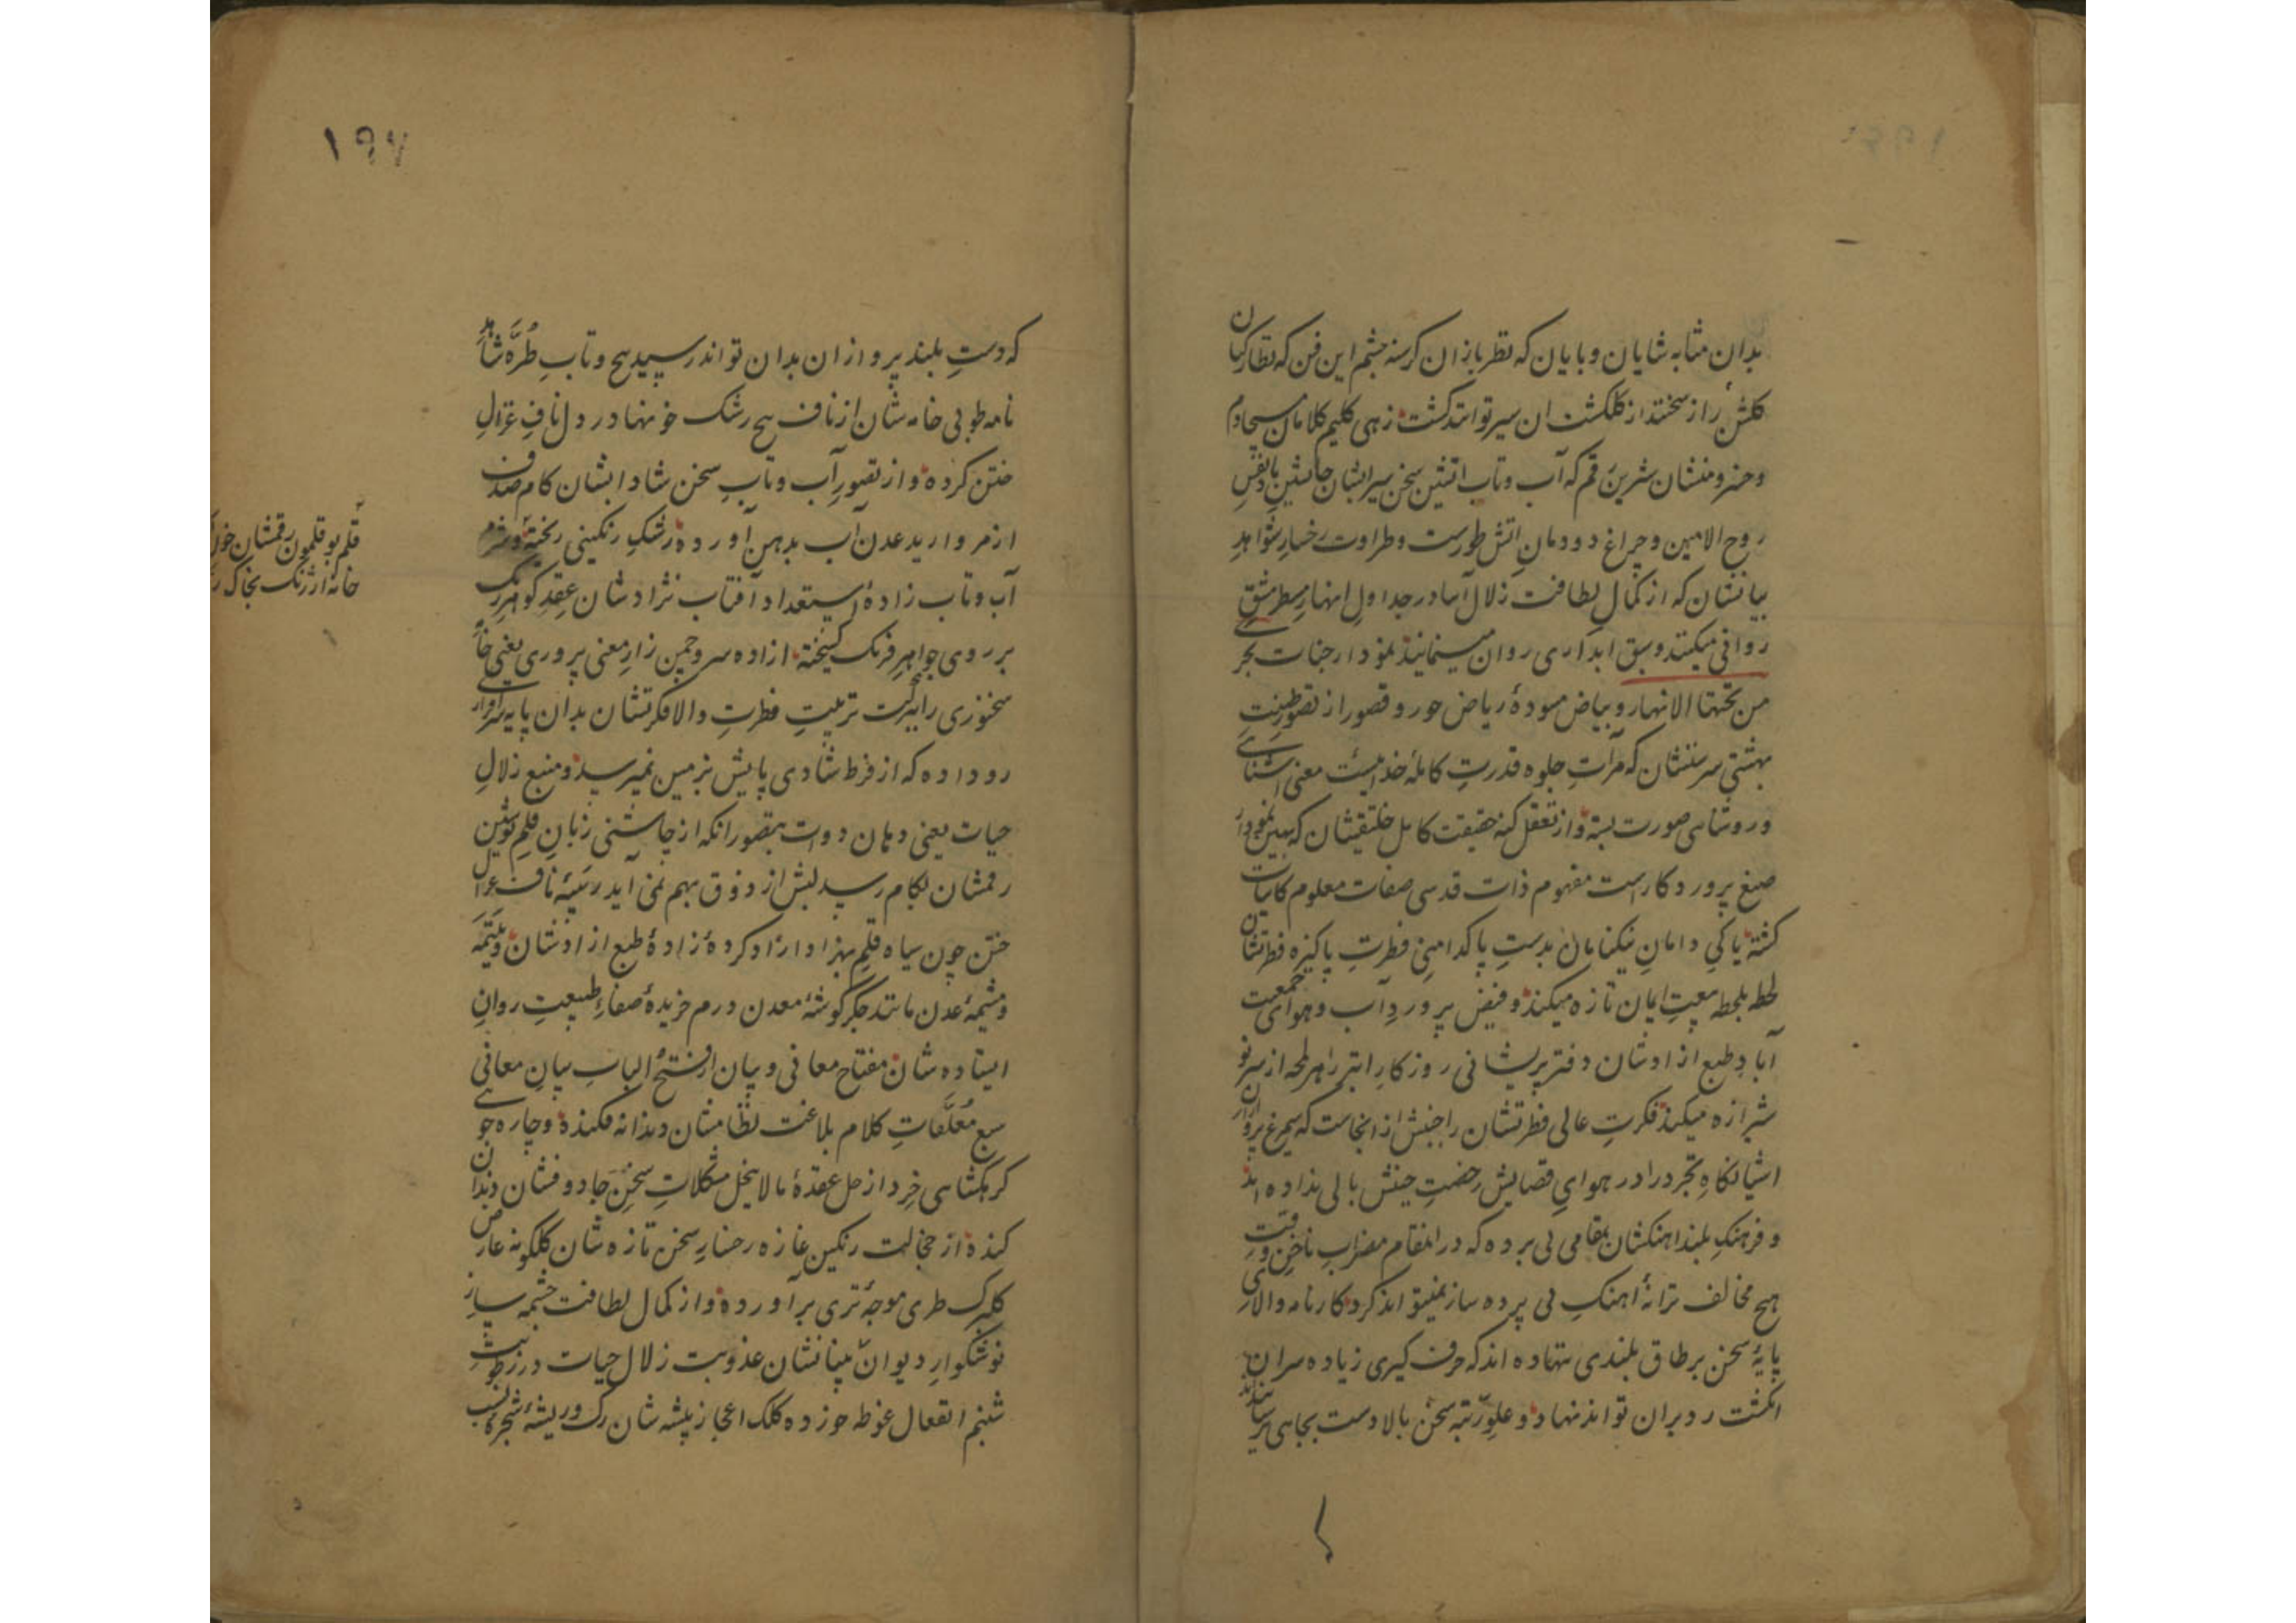 بدان مثابه شایان و بابان که نظربازان کرسنه چشم این فن که نظارکیان
کلشن راز سخنند از کلکشت ان سیر توانند کشت زهی کلیم کلامان مسیحادم
که آب و تاب اتشین سخن سیر ابشان جانشین نفس
روح الامین و چراغ دودمان اتش طورست و طراوت رخسار شواهد
بیانشان که از کمال لطافت زلال آسا در جداول انهار سطر مشق
روانی میکنند و سبق ابداری روان مینمایند نمودار جنات تجری
من تحتها الانهار و بیاض مسودهٔ ریاض حور و قصور از تصور طینت
بهشتی سرشتشان که مرآت جلوه قدرت کاملهٔ خداییست معنی اشنای
و روشناسی صورت بسته و از تعقل کنه حقیقت کامل خلقتشان که بهین نمودار
صنع پروردکارست مفهوم ذات قدسی صفات معلوم کاینات
کشته پاکی دامان نیکنامان بدست پاکدامنی فطرت پاکیزه فطرتشان
لحظه بلحظه ایمان تازه میکند و فیض پرور دآب و هوای جمعیت
آباد طبع ازادشان دفتر پریشانی روزکار ابتر را هر لمحه از سرنو
شیرازه میکند فکرت عالی فطرتشان را جنبش از انجاست که سیمرغ
اشیانکاه تجرد را در هوای فضایش رخصت جنبش بالی نداده اند
و فرهنک بلند اهنکشان بمقامی پی برده که در انمقام مضراب ناخن
هیچ مخالف ترانهٔ اهنک بی پرده ساز نمیتواند کرد و کارنامه والای
پایهٔ سخن بر طاق بلندی نهاده اند که حرف کیری زیاده سران
انکشت رد بران تواند نهاد و علو رتبه سخن بالادست بجایی رسانند
۱۹۷
که دست بلند پروازان بدان تواند رسید هیچ و تاب طُرّه شاهد
نامه طوبی خامه شان از ناف رشک خونها در دل ناف غزال
ختن کرده و از تصور آب و تاب سخن شادابشان کام صدف
از مروارید عدن آب بدهن آورده رشک رنکینی ریخته
آب و تاب زادهٔ استعداد آفتاب نژادشان عقد کوهر رنک
بر روی جواهر فرنک کسیخته ازاده سرو چمن زار معنی پروری یعنی
سخنوری را ببرکت تربیت فطرت والا فکرتشان بدان پایه سرافرازی
رو داده که از فرط شادی پایش بزمین نمیرسد و منبع زلال
حیات یعنی دهان دوات بتصور انکه از چاشنی زبان قلم نوشین
رقمشان بکام رسد لبش از ذوق بهم نمی آید ناف غزال
ختن چون سیاه قلم بهزاد ازاد کردهٔ زادهٔ طبع ازادشان و یتیمهٔ
مشیمهٔ عدن مانند جکرکوشهٔ معدن درم خریدهٔ صفاء طبیعت روان
ایستاده شان مفتاح معانی و بیان از فتح الباب بیان معانی
سبع معلقات کلام بلاغت نظامشان دندانه فکنده و چاره جوی
کرهکشای خرد از حل عقدهٔ مالاینحل مشکلات سخن جادوفشان دندان
کنده از خجالت رنکین غازه رخسار سخن تازه شان کلکونه عارض
کلبرک طری موجهٔ تری برآورده و از کمال لطافت چشمه سار
خوشکوار دیوان بیانشان عذوبت زلال حیات در
شبنم انفعال غوطه خورده کلک اعجاز پیشه شان رک و ریشهٔ شجره
قلم بوقلمون رقمشان خون
خانهٔ ارژنک بخاک